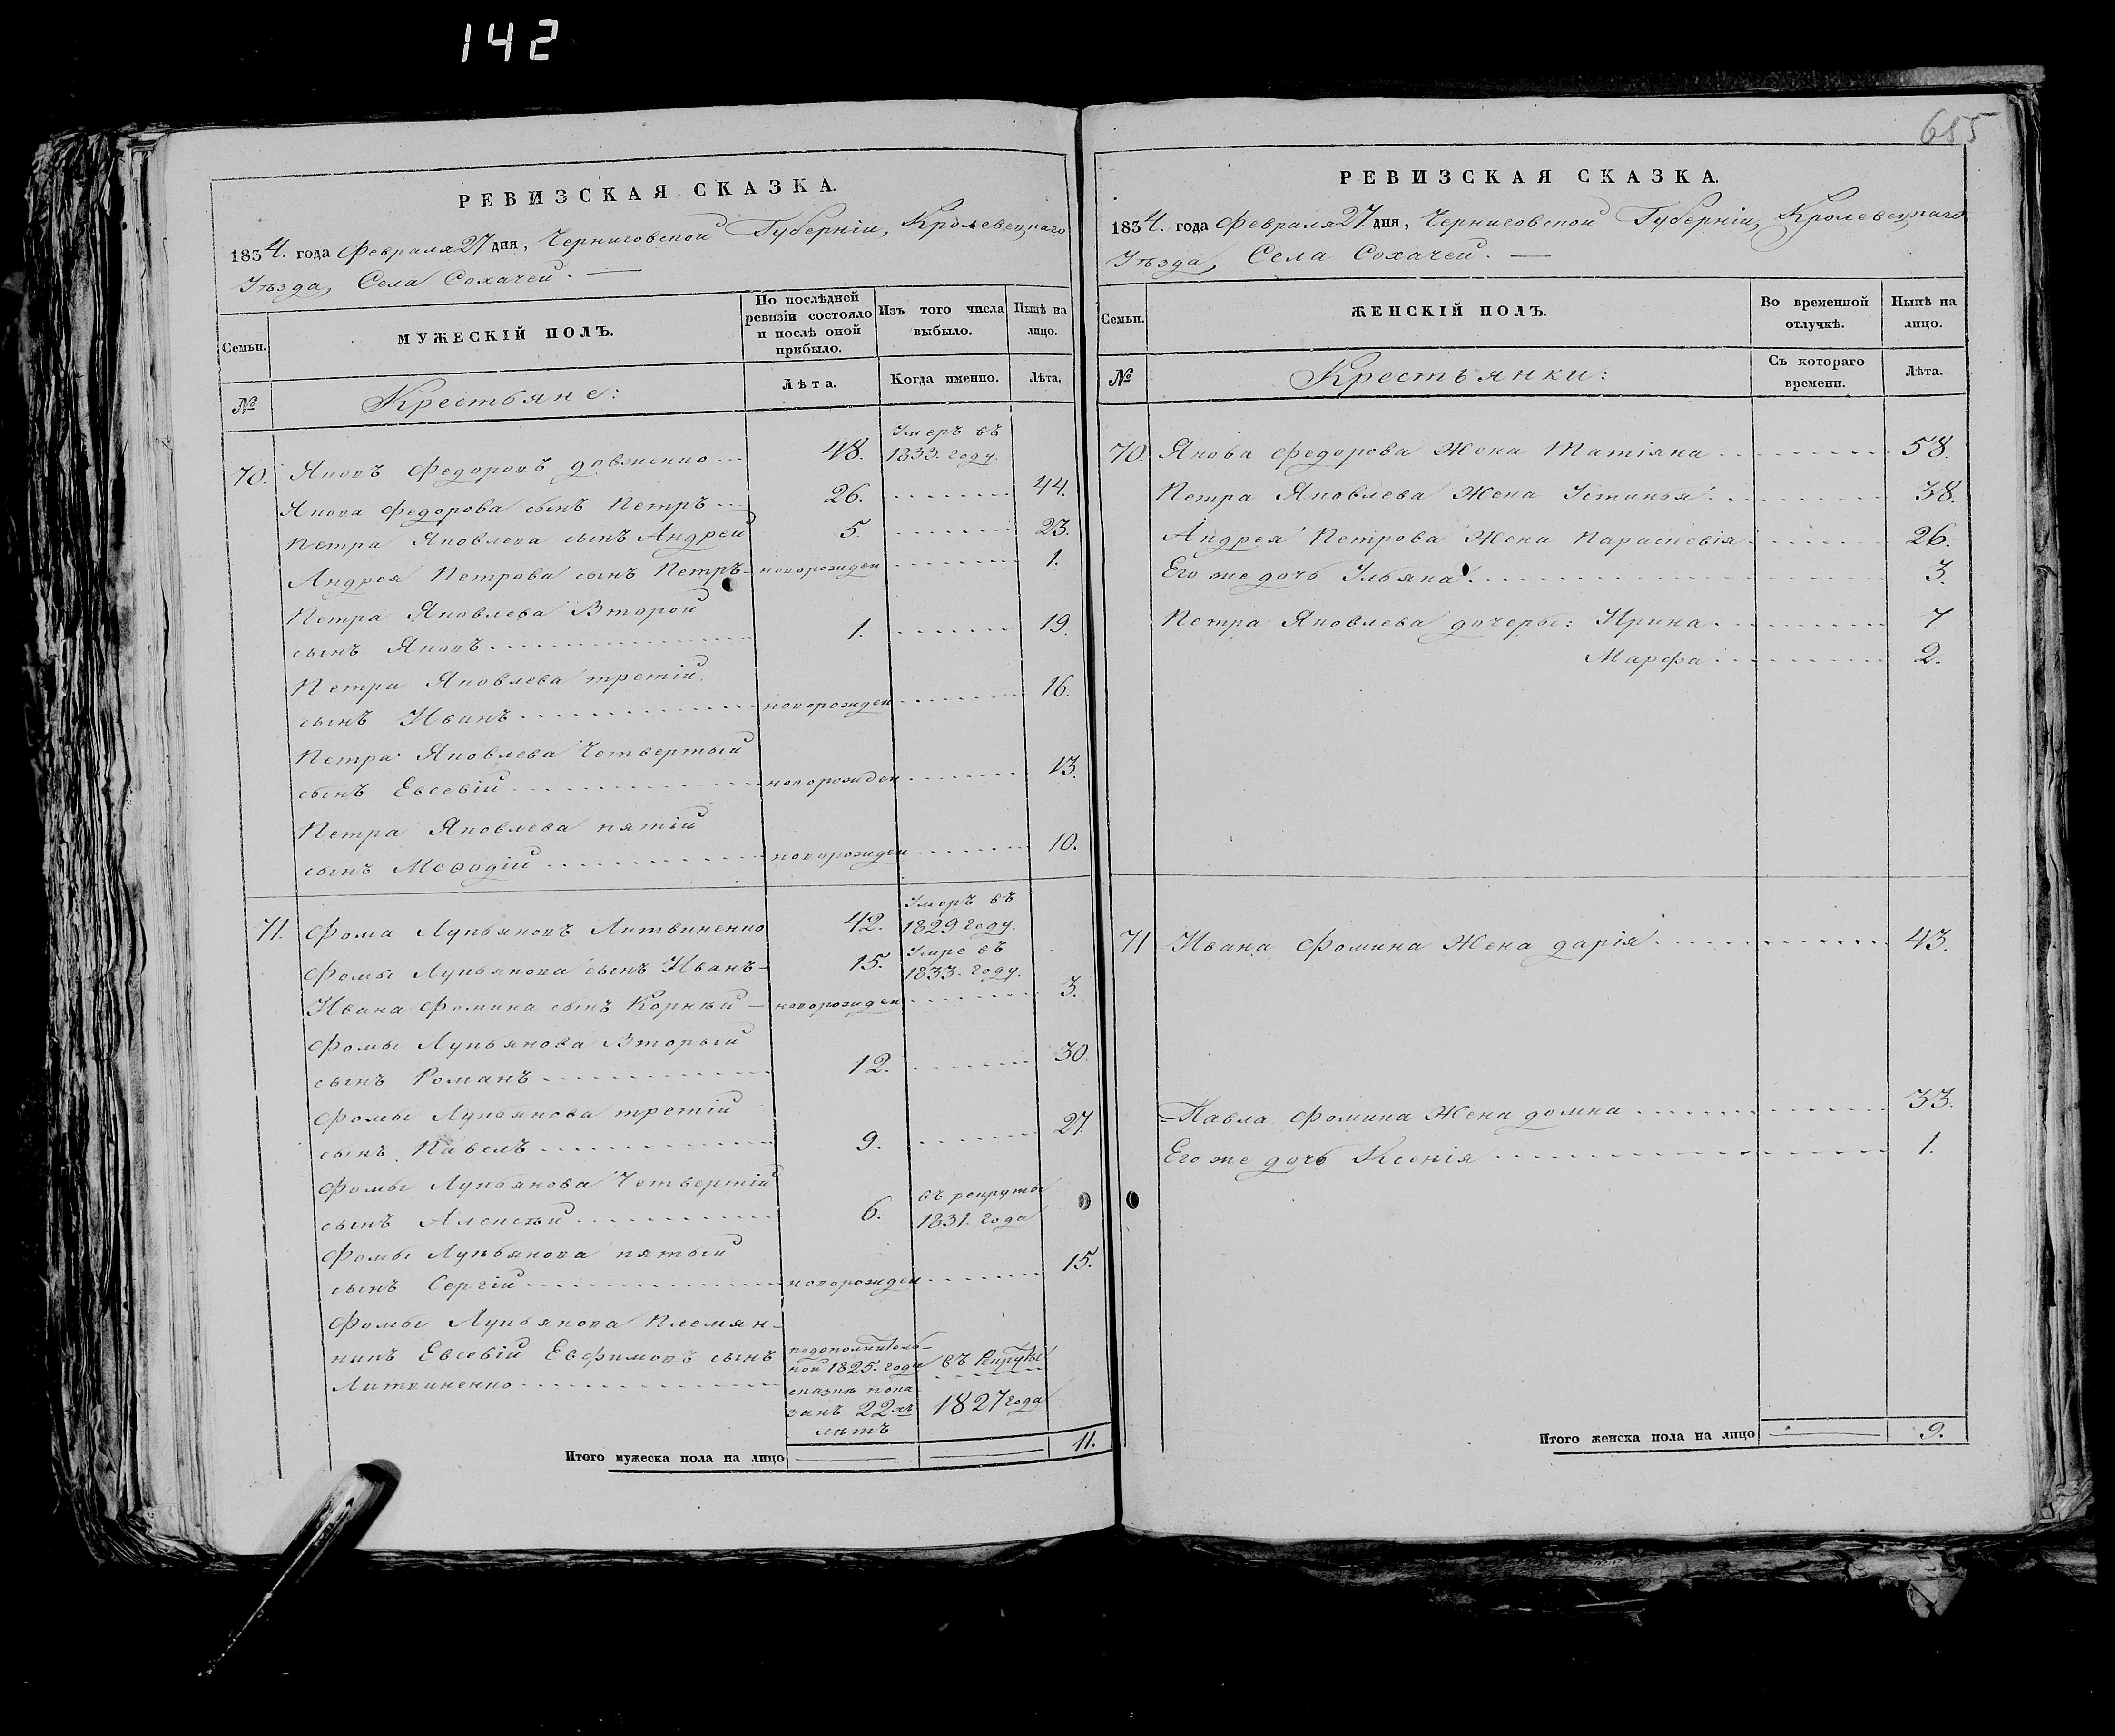 142
РЕВИЗСКАЯ СКАЗКА.
1834. года Февраля 27 дня, Черниговской Губерніи, Кролевецкаго
Уѣзда, Села Сохачей. —
Семьи.
МУЖЕСКІЙ ПОЛЪ.
По послѣдней
ревизіи состояло
и послѣ оной
прибыло.
Изъ того числа
выбыло.
Нынѣ на
лицо.
№
Крестьяне:
Лѣта.
Когда именно.
Лѣта.
Умеръ въ
70. Яковъ Федоровъ довженко 48. 1833. году.
Якова Федорова сынъ Петръ 26. 44.
Петра Яковлева сынъ Андрей 5. 23.
Андрея Петрова сынъ Петръ новорожден 1.
Петра Яковлева Второй
сынъ Яковъ 1. 19.
Петра Яковлева третій
сынъ Иванъ новорожден 16.
Петра Яковлева Четвертый
сынъ Евсевій новорожден 13.
Петра Яковлева пятій
сынъ Меѳодій новорожден 10.
Умеръ въ
71. Фома Лукьяновъ Литвиненко 42. 1829 году.
Умре въ
Фомы Лукьянова сынъ Иванъ 15. 1833. году.
Ивана Фомина сынъ Корнѣй новорожден 3.
Фомы Лукьянова Вторый
сынъ Романъ 12. 30.
Фомы Лукьянова третій
сынъ Павелъ 9. 27.
Фомы Лукьянова Четвертій
въ рекруты
сынъ Алексѣй 6. 1831. года
Фомы Лукьянова пятый
сынъ Сергій новорожден 15.
Фомы Лукьянова Племян-
никъ Евсевій Евфимовъ сынъ
Литвиненко
подополнитель-
ной 1825. года
сказкѣ пока
занъ 22хъ
лѣтъ
въ Рекруты
1827 года
Итого мужеска пола на лицо 11.
655
РЕВИЗСКАЯ СКАЗКА.
1834. года Февраля 27. дня, Черниговской Губерніи, Кролевецкаго
Уѣзда, Села Сохачей. —
Семьи.
ЖЕНСКІЙ ПОЛЪ.
Во временной
отлучкѣ.
Нынѣ на
лицо.
№
Крестьянки:
Съ котораго
времени.
Лѣта.
70. Якова Федорова Жена Татіяна 58.
Петра Яковлева Жена Устинья 38.
Андрея Петрова Жена Параскевія 26.
Его же дочь Ульяна 3.
Петра Яковлева дочеры: Ирина 7
Марфа 2.
71 Ивана Фомина Жена дарія 43.
Павла Фомина Жена домна 33.
Его же дочь Ксенія 1.
Итого женска пола на лицо 9.